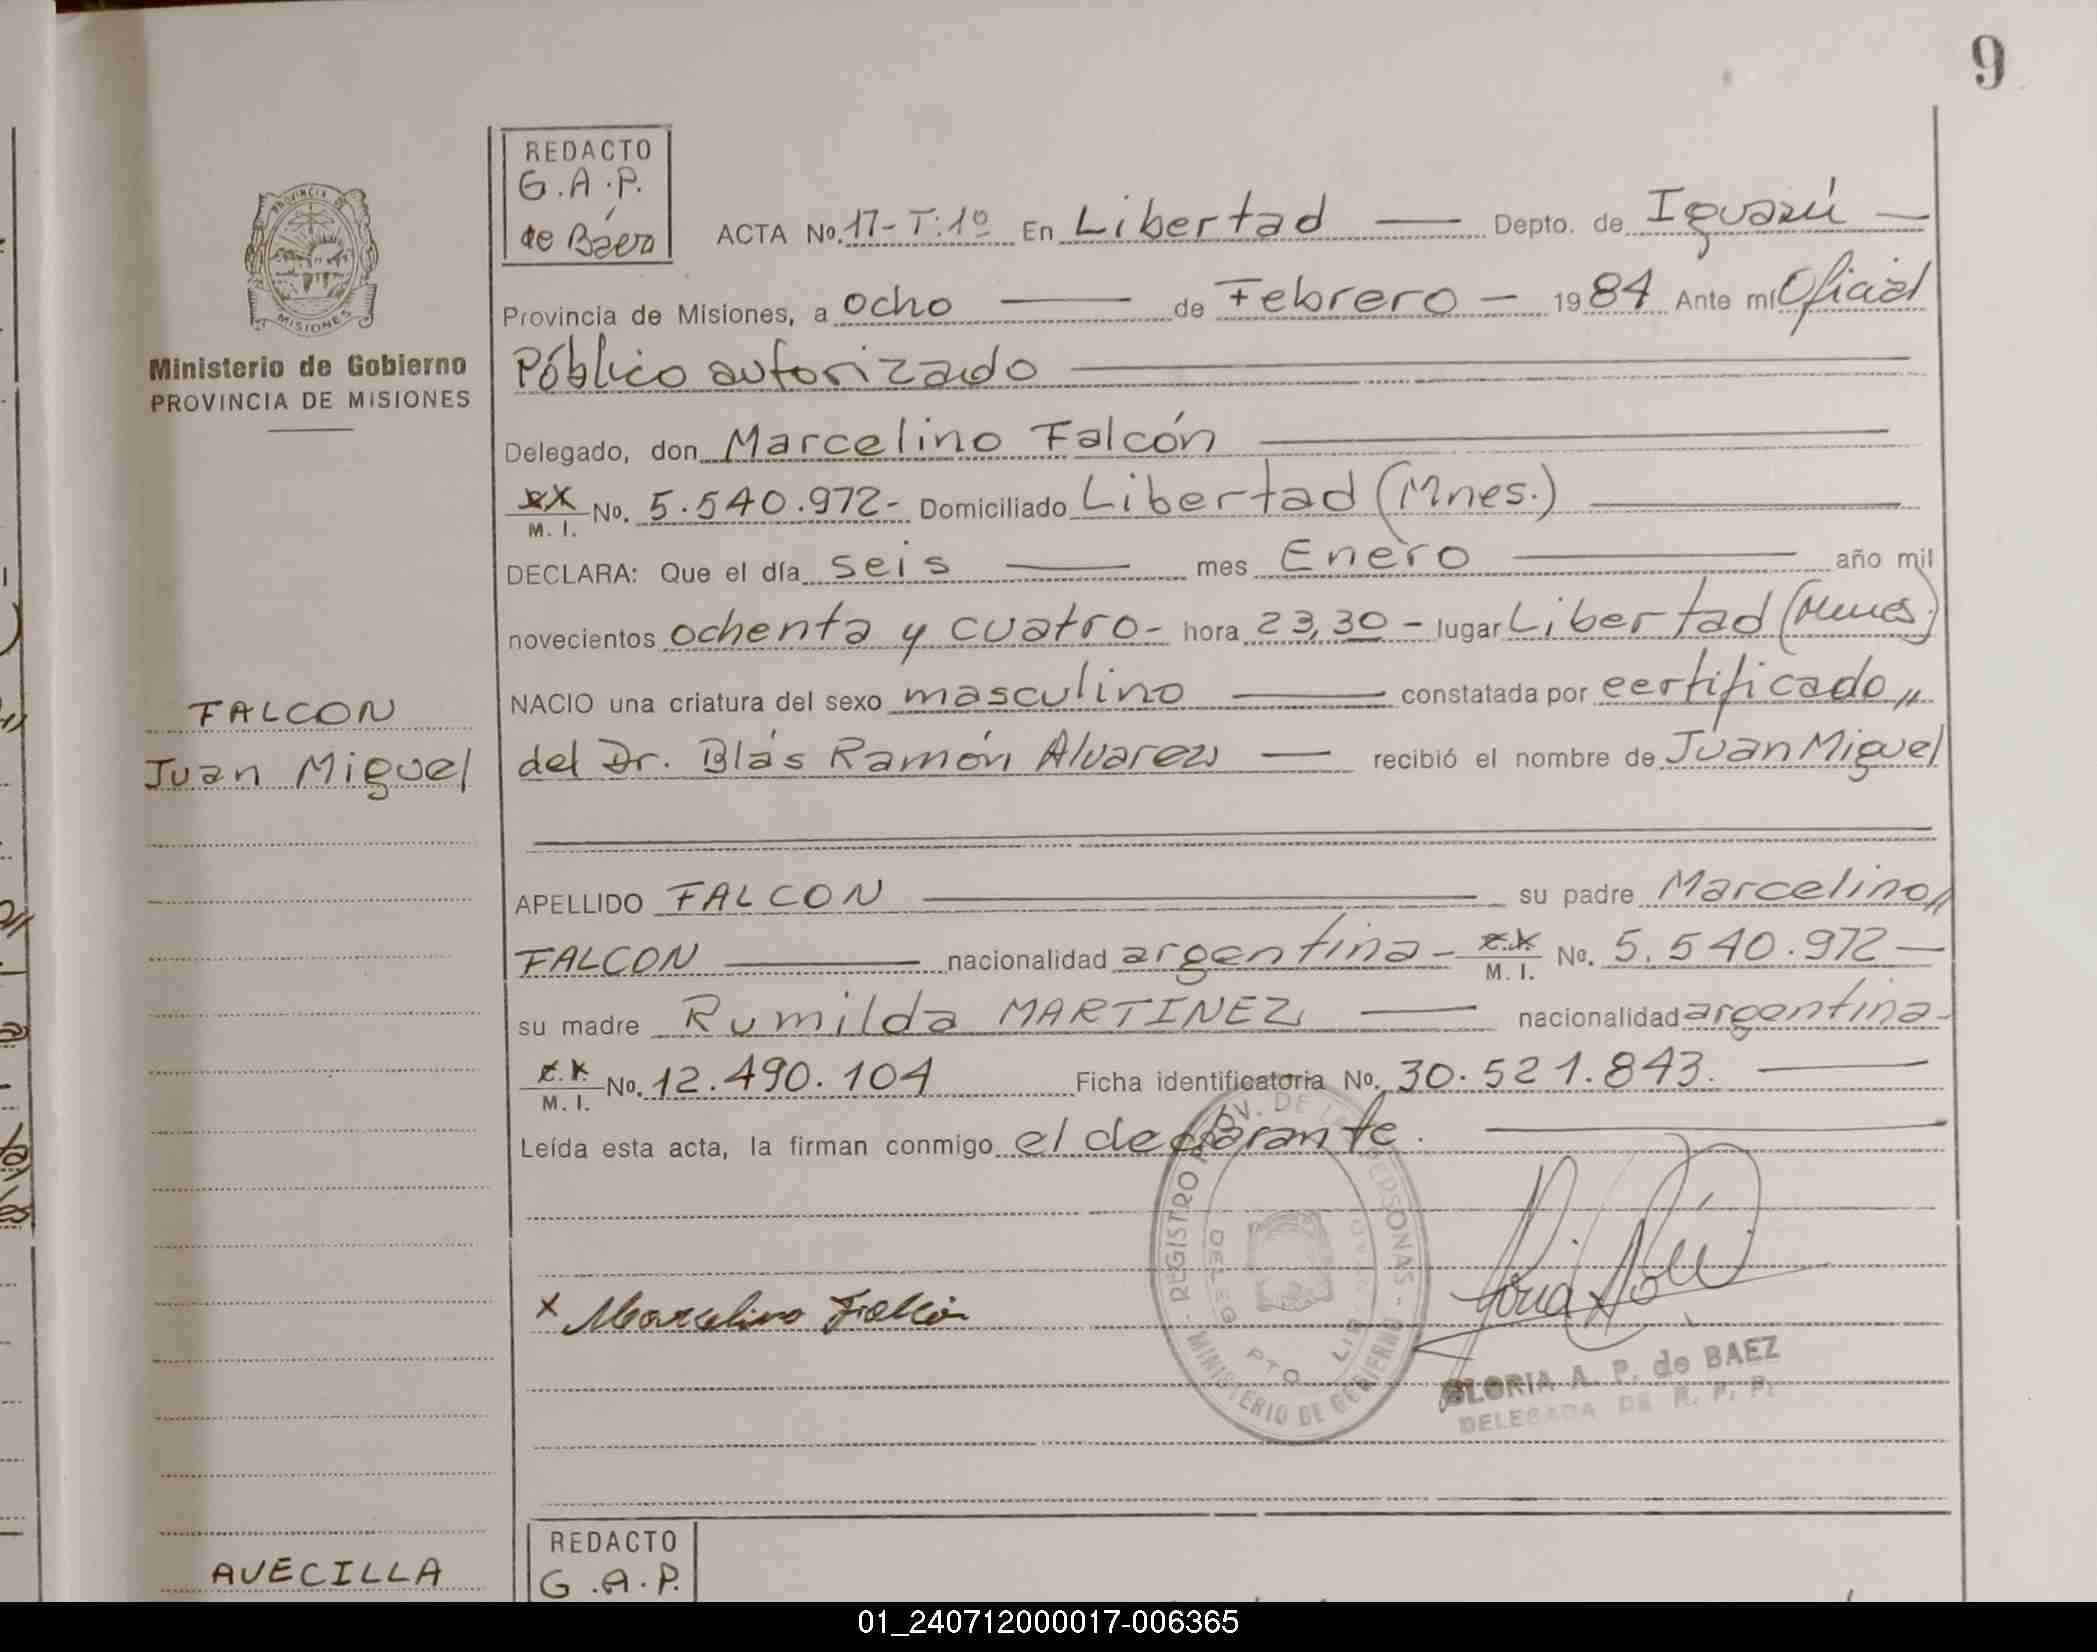 9
PROVINCIA DE
MISIONES
Ministerio de Gobierno
PROVINCIA DE MISIONES
FALCON
Juan Miguel
AVECILLA
REDACTO
G.A.P.
de Báez
ACTA No. 17-T:1º En Libertad — Depto. de Iguazú —
Provincia de Misiones, a ocho — de Febrero — 1984 Ante mí Oficial
Público autorizado —
Delegado, don Marcelino Falcón —
M. I. No. 5.540.972- Domiciliado Libertad (Mnes.) —
DECLARA: Que el día seis — mes Enero — año mil
novecientos ochenta y cuatro- hora 23,30 - lugar Libertad (Mnes.)
NACIO una criatura del sexo masculino — constatada por certificado„
del Dr. Blás Ramón Alvarez — recibió el nombre de Juan Miguel
APELLIDO FALCON — su padre Marcelino„
FALCON — nacionalidad argentina- M. I. No. 5.540.972 —
su madre Rumilda MARTINEZ — nacionalidad argentina-
M. I. No. 12.490.104 Ficha identificatoria No. 30.521.843. —
Leída esta acta, la firman conmigo el declarante. —
x Marcelino Falcón
REGISTRO PROV. DE LAS PERSONAS - MINISTERIO DE GOBIERNO -
GLORIA A. P. de BAEZ
DELEGADA DE R. P. P.
REDACTO
G.A.P.
01_240712000017-006365